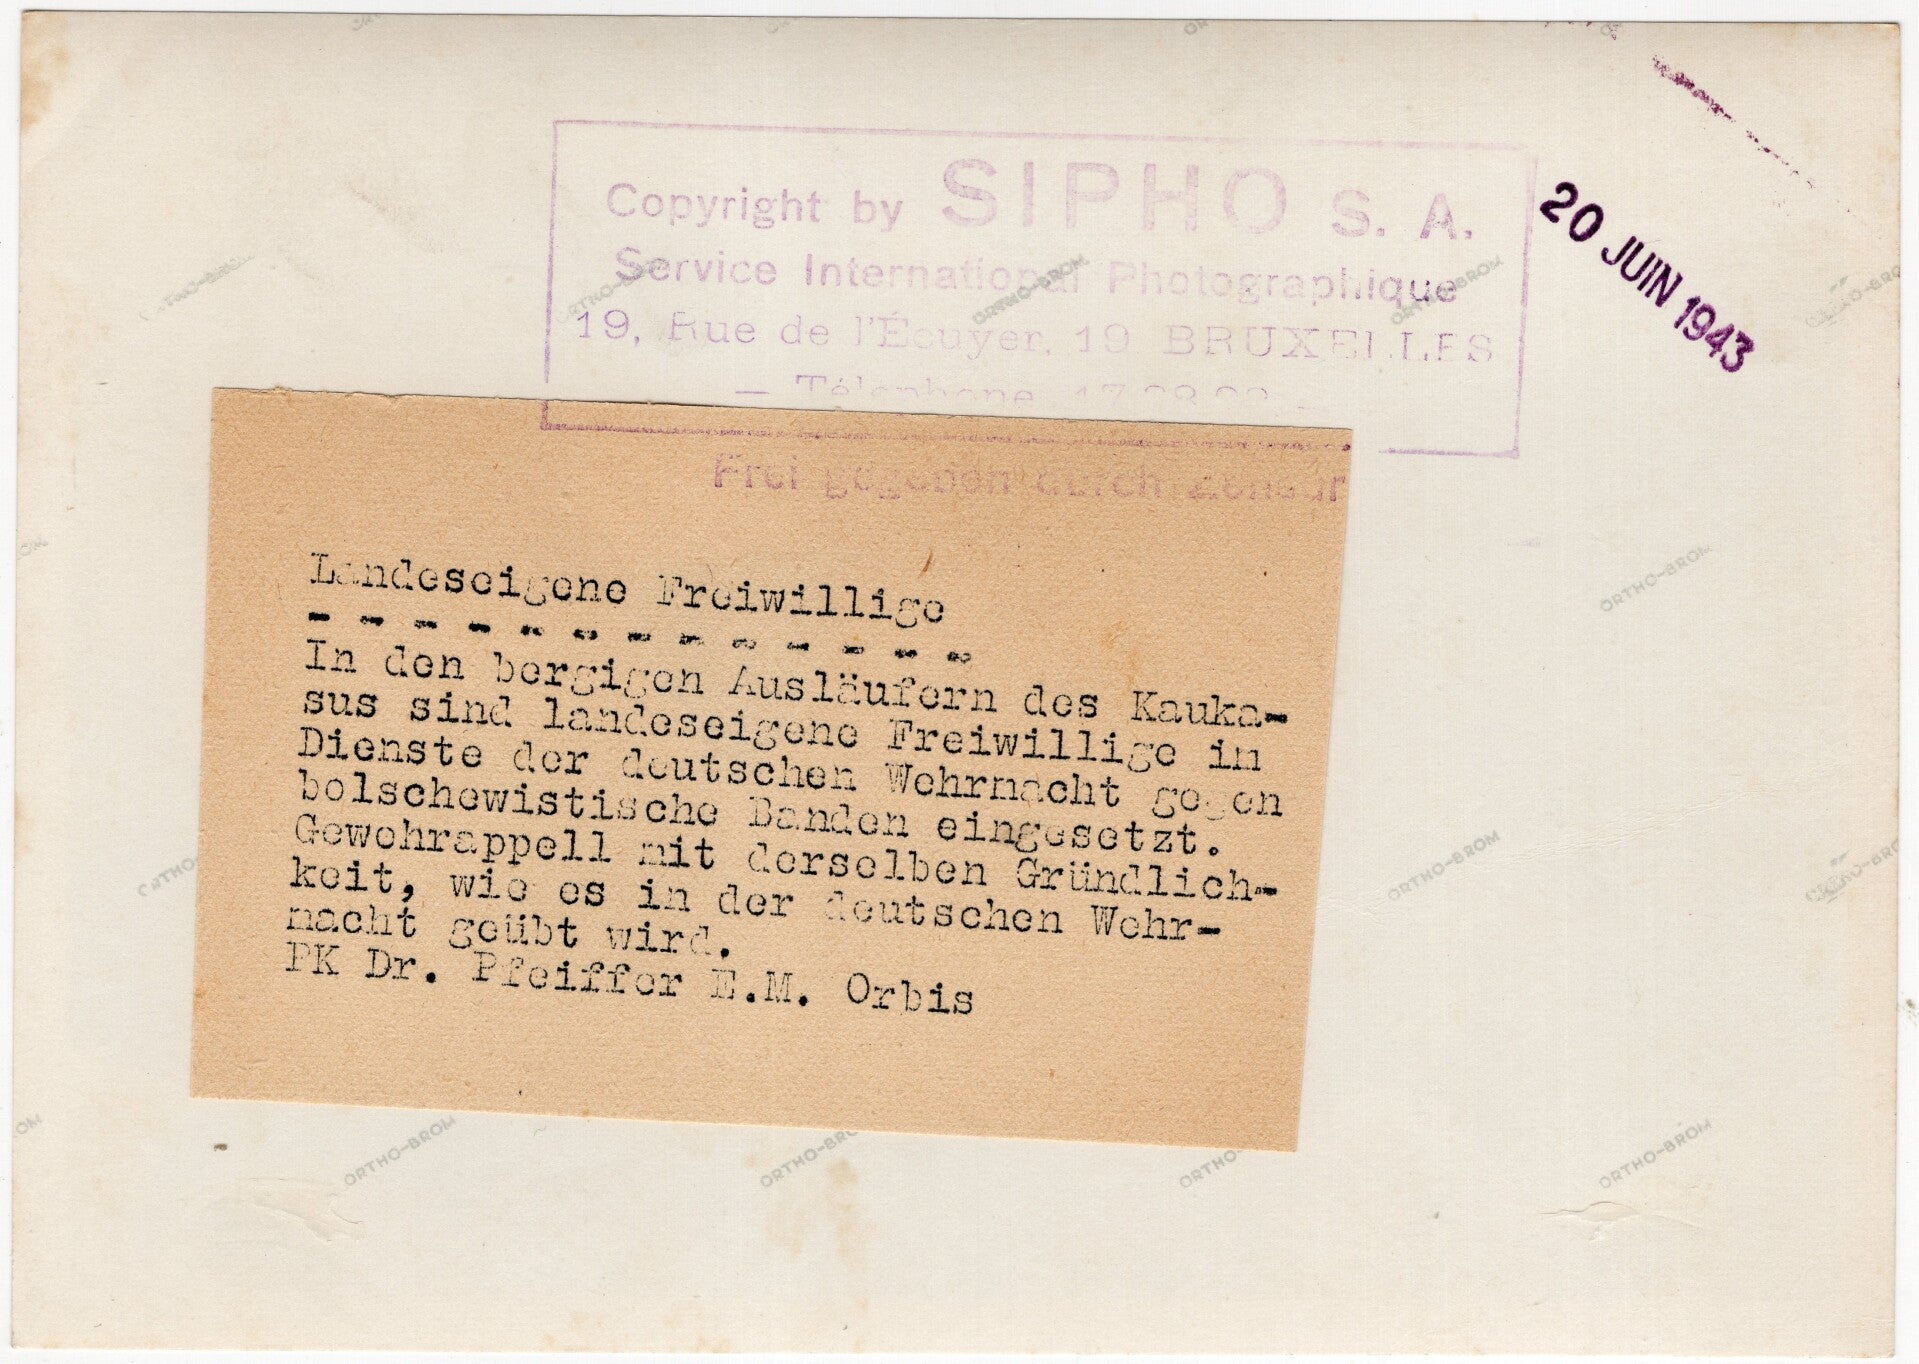 Copyright by SIPHO S. A.
Service International Photographique
19, Rue de l'Écuyer, 19 BRUXELLES
— Téléphone
20 JUIN 1943
Frei gegeben durch Zensur
Landeseigene Freiwillige
- - - - - - - - - - - - -
In den bergigen Ausläufern des Kauka-
sus sind landeseigene Freiwillige in
Dienste der deutschen Wehrmacht gegen
bolschewistische Banden eingesetzt.
Gewehrappell mit derselben Gründlich-
keit, wie es in der deutschen Wehr-
macht geübt wird.
PK Dr. Pfeiffer E.M. Orbis
ORTHO-BROM
ORTHO-BROM
ORTHO-BROM
ORTHO-BROM
ORTHO-BROM
ORTHO-BROM
ORTHO-BROM
ORTHO-BROM
ORTHO-BROM